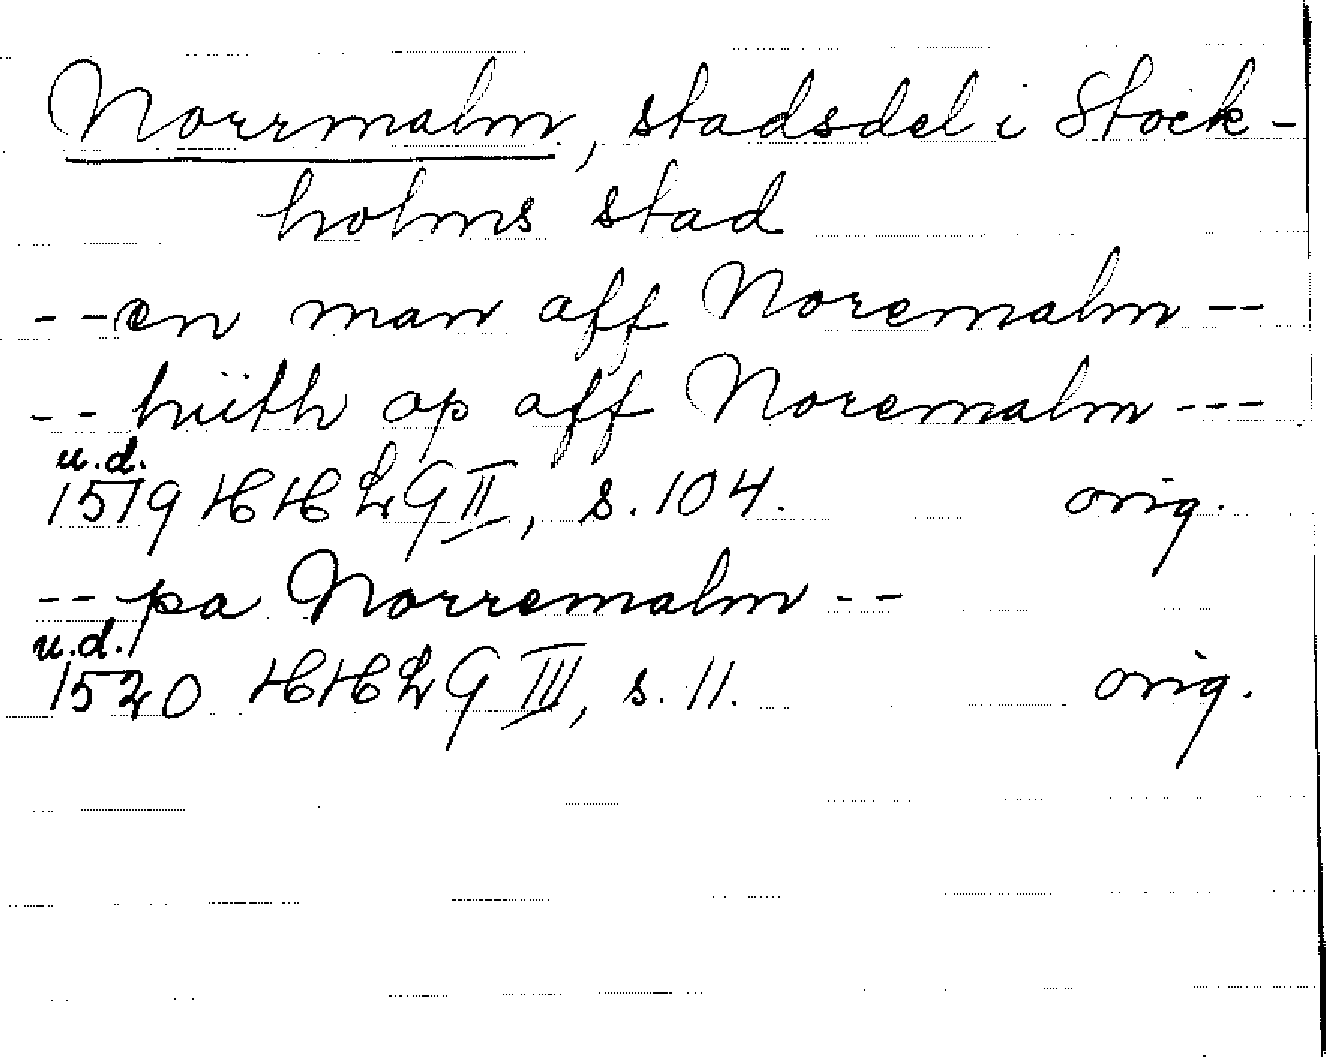 Norrmalm, stadsdel i Stock-
holms stad
--en man aff Noremalm--
--hüth op aff Noremalm---
u.d.
1519 HH Lg II, s. 104. orig.
--pa Norremalm--
u.d.
1520 HH Lg III, s. 11. orig.